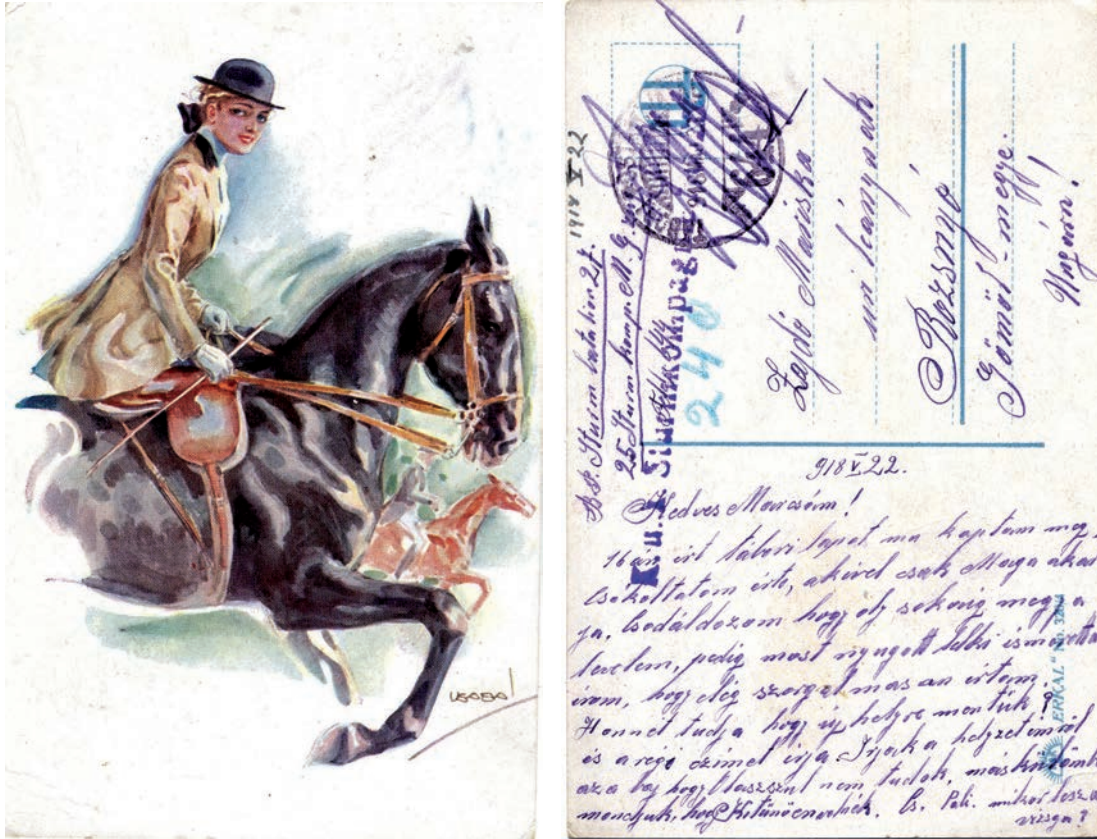 USABAL
1918 V 22
25 Sturm komp.
K. u. k.
240
Zajdó Mariska
úri leánynak
Rozsnyó
Gömöl-megye.
Ungarn!
918 V 22.
Kedves Marcsám!
16 án irt tábori lapot ma kaptam meg,
Csókoltatom érte, akivel csak Maga akar
ja. Csodáldozom hogy oly sokáig megy a
levelem, pedig most nyugott lelki ismerettel
irom, hogy elég szorgalmasan irtam.
Honnét tudja hogy új helyre mentünk?
és a régi czimet irja Irjak a helyzetemröl
az a baj hogy tudok, máskülömben
mondjuk, hogy Kitünöen Cs. Pali. mikor lesz a
vizsga?
"ERKAL" No.